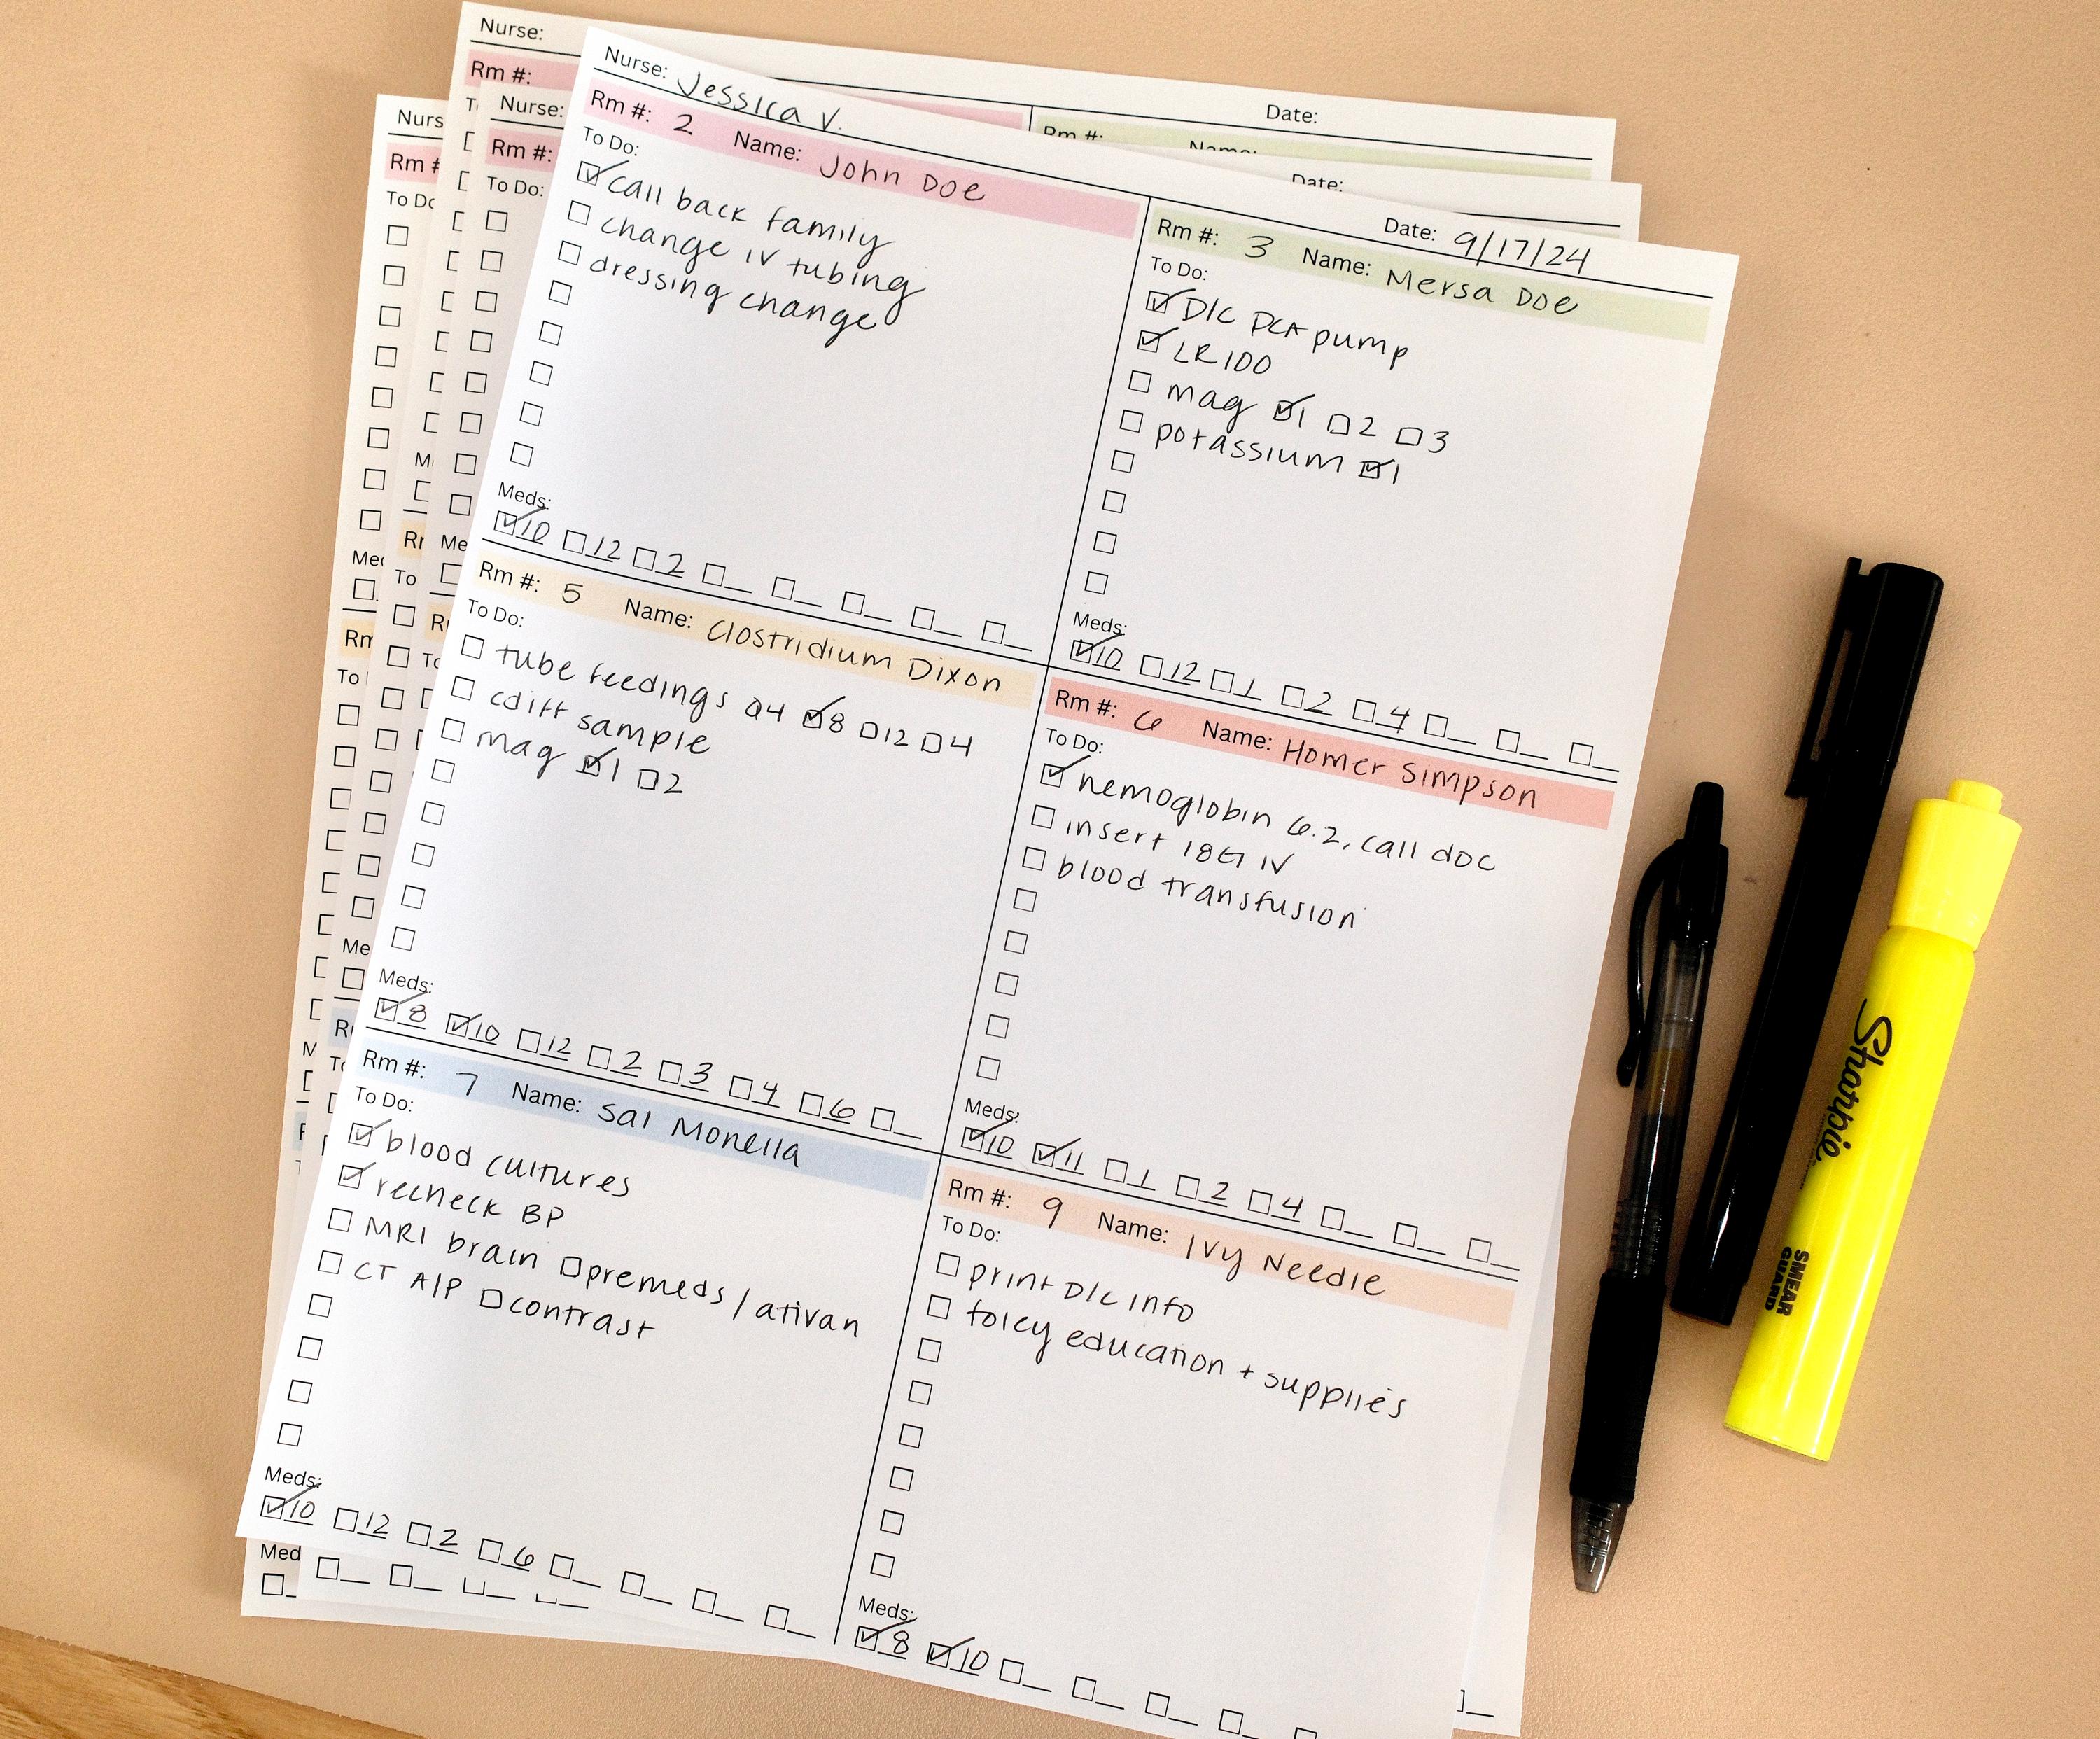 Nurse:
Rm #:
Date:
Rm #: Name:
Nurse:
Rm #:
To Do:
Date:
Nurs
Rm #
To Do
Med
Rm
To
Me
Rm
To
Med
Nurse: Jessica V.
Date: 9/17/24
Rm #: 2 Name: John Doe
To Do:
call back family
change IV tubing
dressing change
Meds:
10 12 2
Rm #: 3 Name: Mersa Doe
To Do:
D/C PCA pump
LR100
mag 1 2 3
potassium 1
Meds:
10 12 1 2 4
Rm #: 5 Name: Clostridium Dixon
To Do:
tube feedings Q4 8 12 4
cdiff sample
mag 1 2
Meds:
8 10 12 2 3 4 6
Rm #: 6 Name: Homer Simpson
To Do:
hemoglobin 6.2, call doc
insert 18G IV
blood transfusion
Meds:
10 11 1 2 4
Rm #: 7 Name: Sal Monella
To Do:
blood cultures
recheck BP
MRI brain premeds/ativan
CT A/P contrast
Meds:
10 12 2 6
Rm #: 9 Name: Ivy Needle
To Do:
print D/C info
foley education + supplies
Meds:
8 10
Sharpie
SMEAR
GUARD